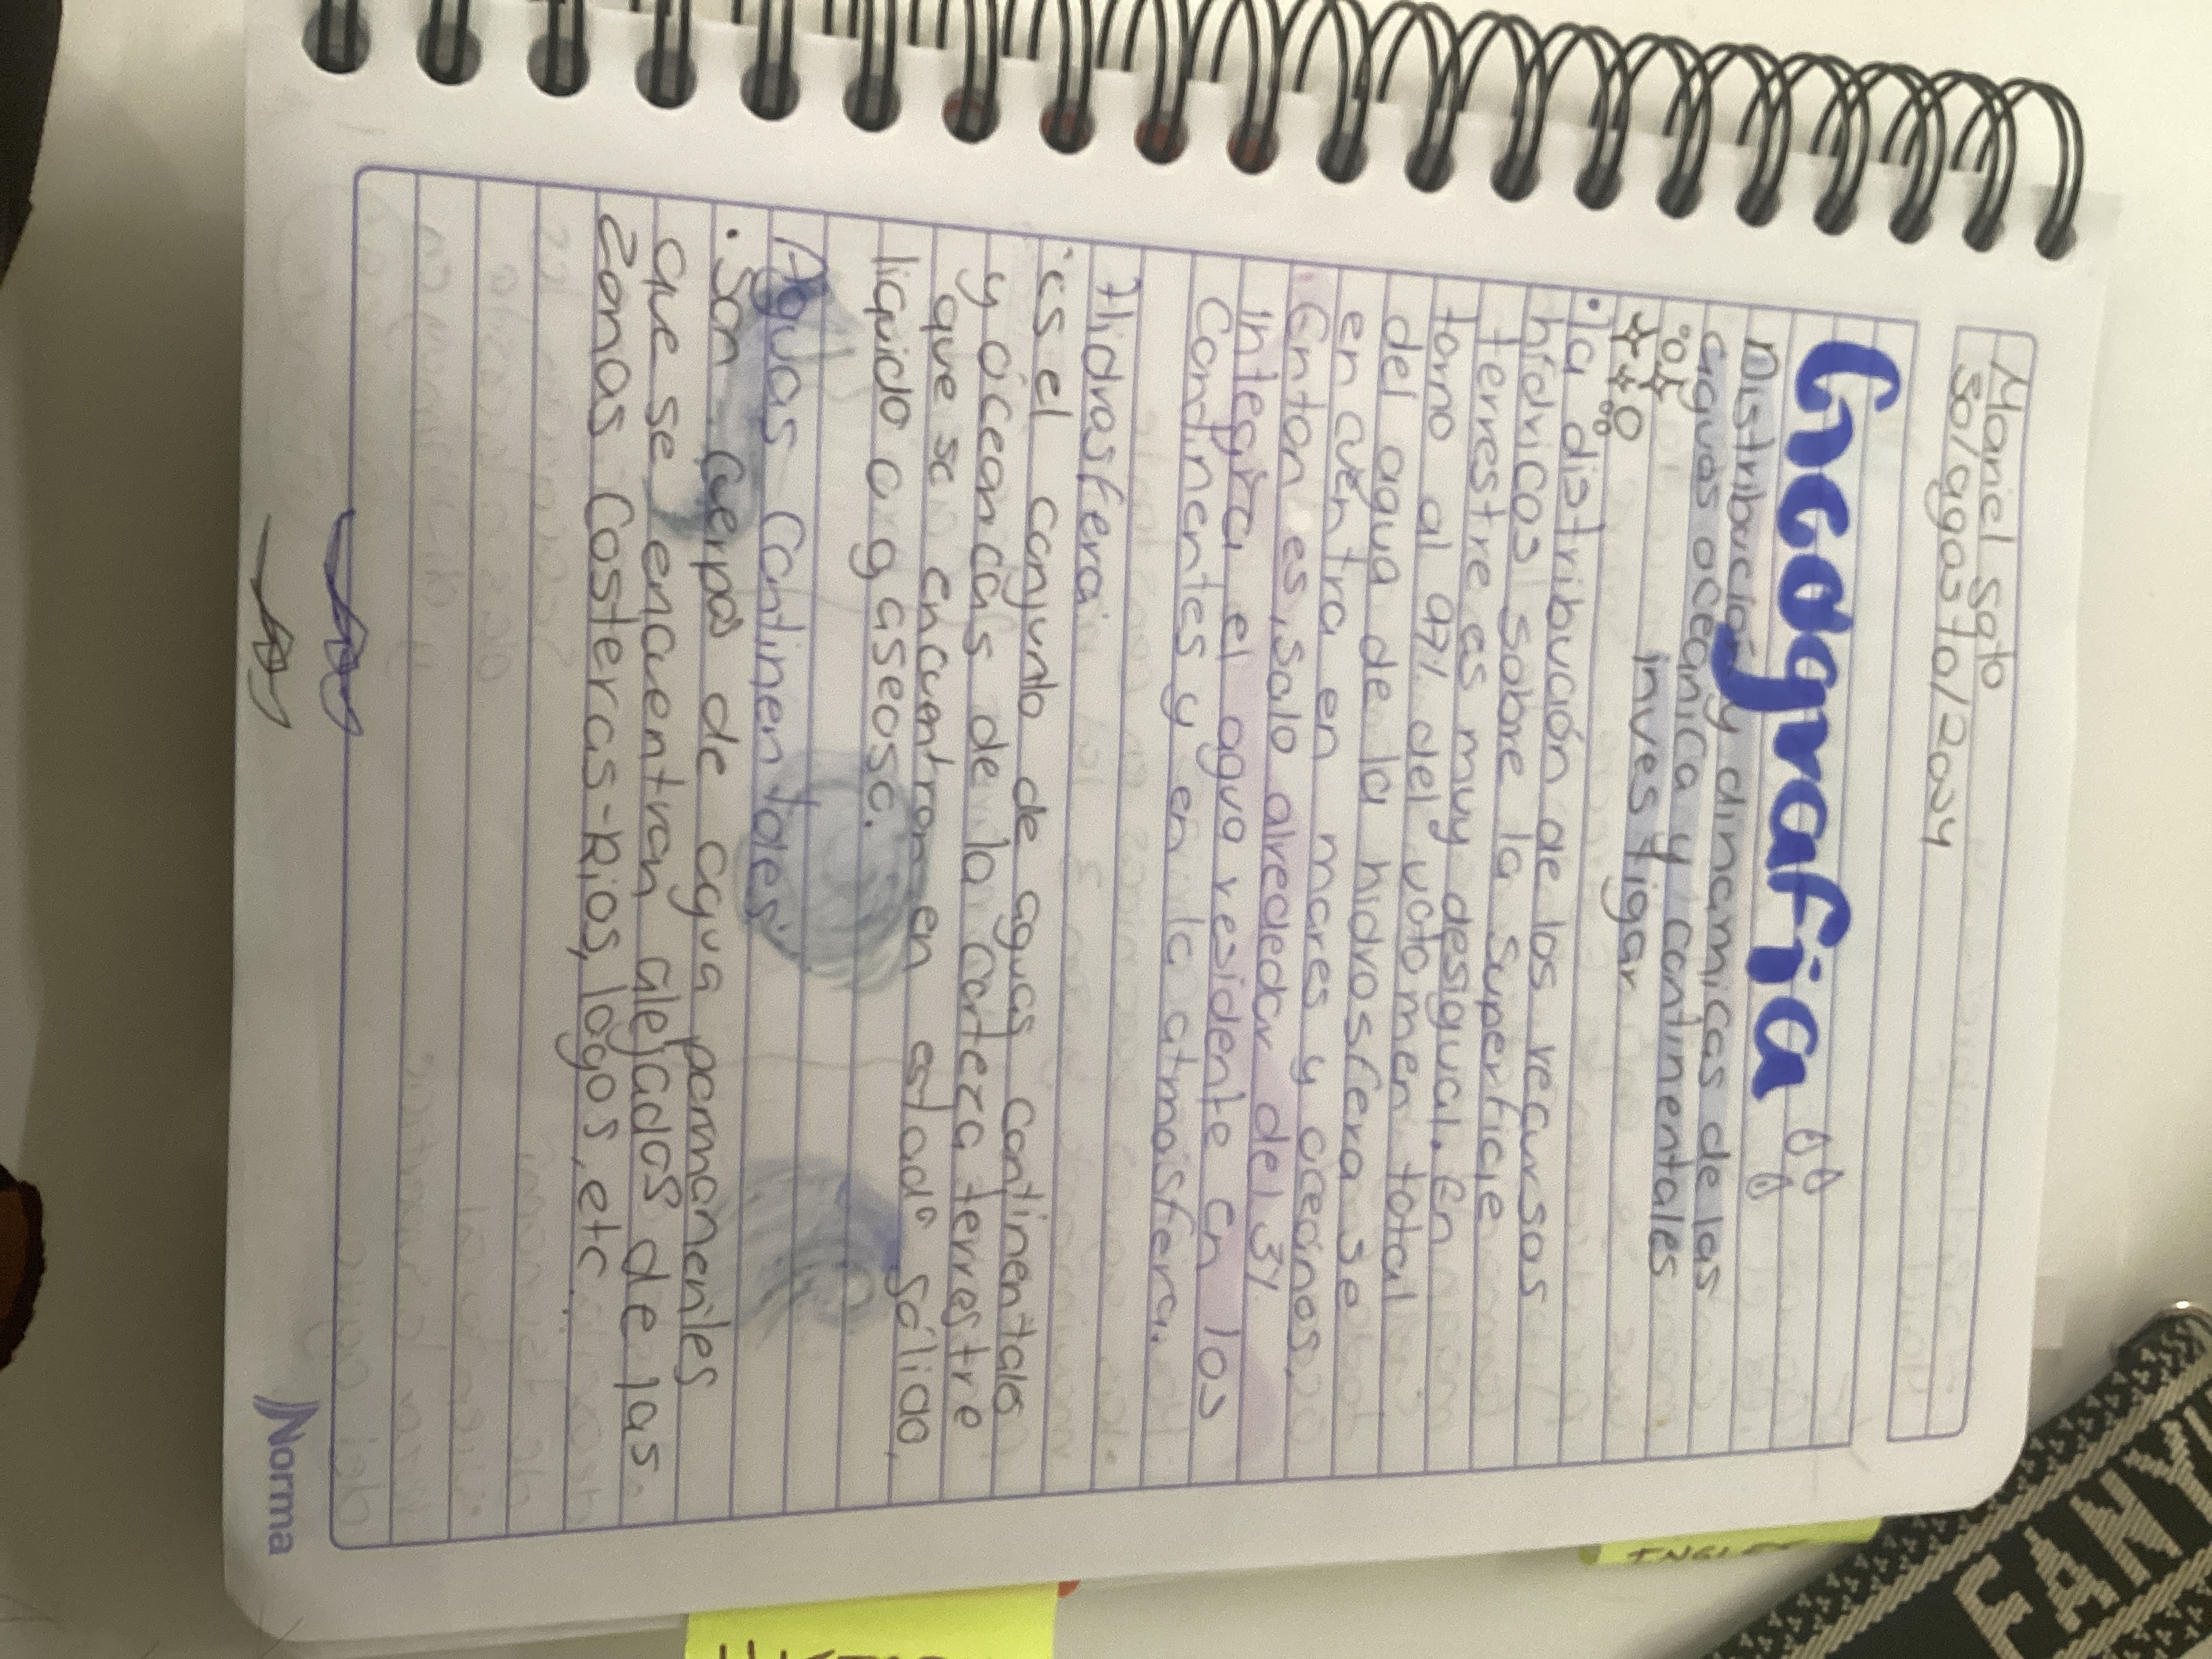 Mariel Soto
30/agosto/2024
Geografia
Distribución y dinamicas de las
aguas oceanica y continentales
investigar
• la distribución de los recursos
hídricos sobre la superficie
terrestre es muy desigual. En
torno al 97% del volomen total
del agua de la hidrosfera se
encuentra en mares y oceanos,
Entonces, solo alrededor del 3%
integra el agua residente en los
Continentes y en la atmosfera.
Hidrosfera
• es el conjunto de aguas continentales
y oceanicas de la corteza terrestre
que se encuentran en estado solido,
liquido o gaseoso.
Aguas Continentales
• Son cuerpos de agua permanentes
que se encuentran alejados de las
zonas Costeras-Rios, lagos, etc...
Norma
INGLES
FANY